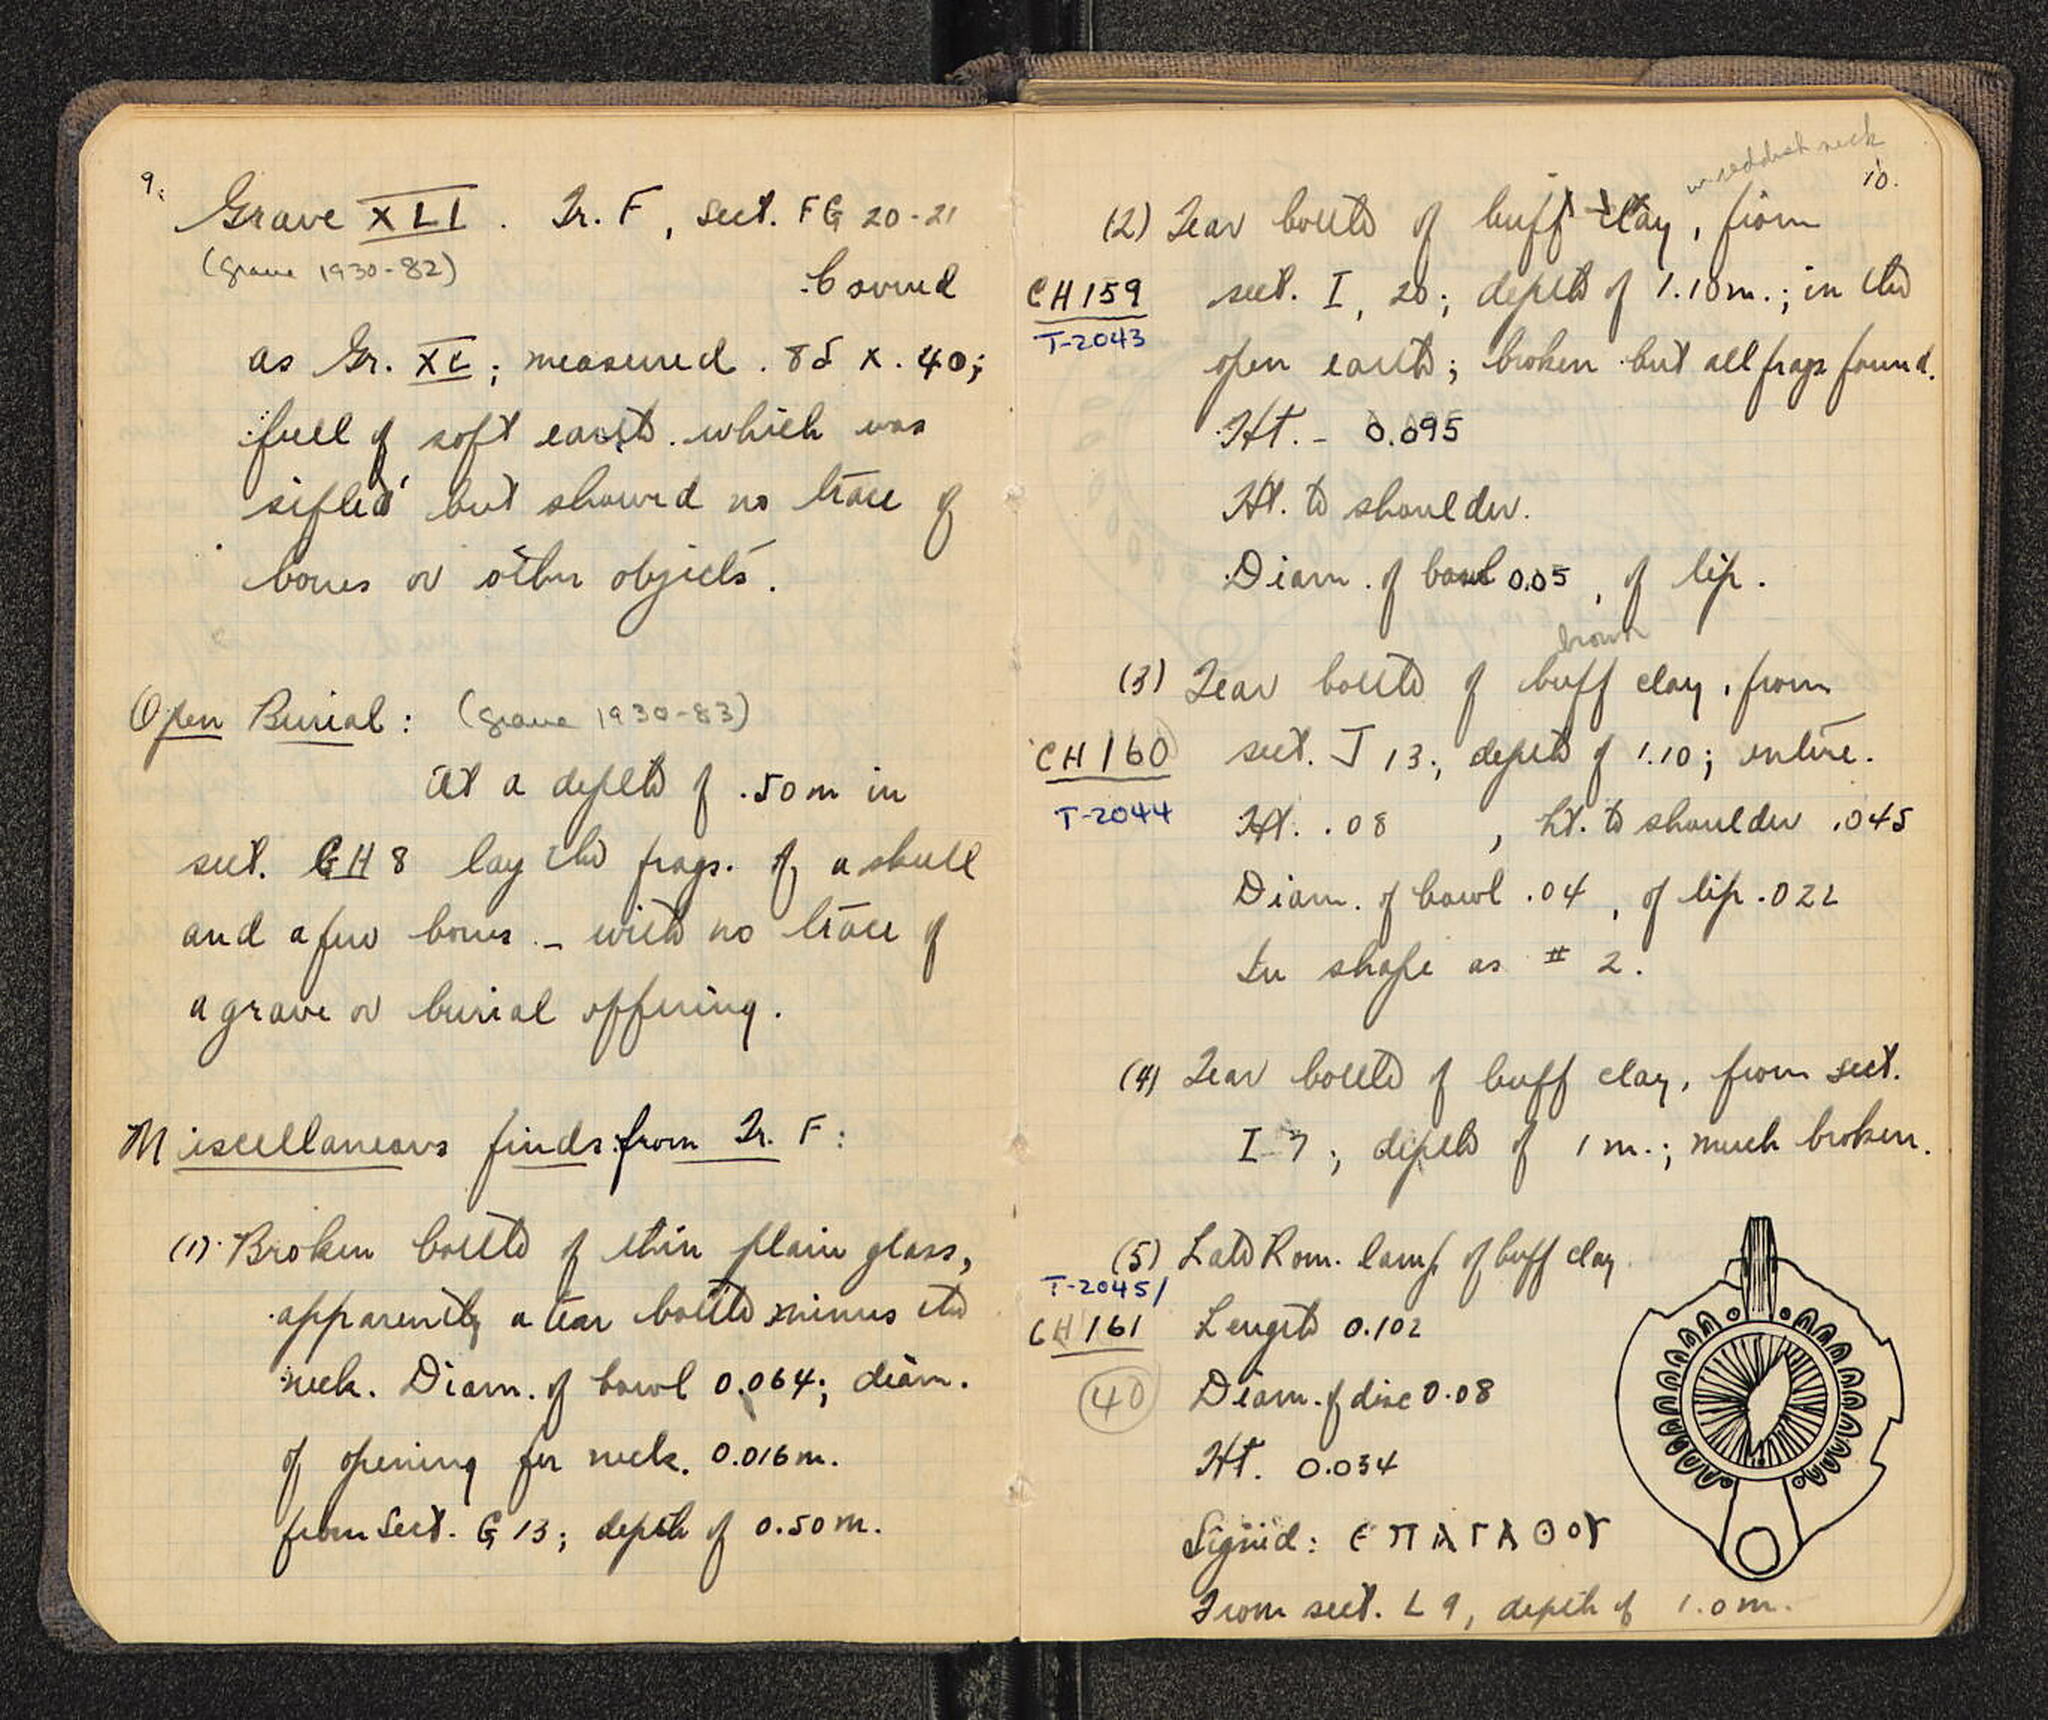 9.
Grave XLI. Tr. F, sect. FG 20-21
(grave 1930-82)
Covered
as Gr. XL; measured .85 x .40;
full of soft earth which was
sifted but showed no trace of
bones or other objects.
Open Burial: (grave 1930-83)
At a depth of .50 m in
sect. GH 8 lay the frags. of a skull
and a few bones - with no trace of
a grave or burial offering.
Miscellaneous finds from Tr. F:
(1) Broken bottle of thin plain glass,
apparently a tear bottle minus the
neck. Diam. of bowl 0.064; diam.
of opening for neck. 0.016 m.
from Sect. G 13; depth of 0.50 m.
10.
w. reddish neck
(2) Tear bottle of buff clay, from
CH 159 sect. I, 20; depth of 1.10 m.; in the
T-2043
open earth; broken but all frags found.
Ht. - 0.095
Ht. to shoulder.
Diam. of bowl 0.05, of lip.
brown
(3) Tear bottle of buff clay, from
CH 160 sect. J 13; depth of 1.10; entire.
T-2044 Ht. .08 , ht. to shoulder .045
Diam. of bowl .04, of lip .022
In shape as # 2.
(4) Tear bottle of buff clay, from sect.
I 7; depth of 1 m.; much broken.
(5) Late Rom. lamp of buff clay
T-2045/
CH 161 Length 0.102
40 Diam. of disc 0.08
Ht. 0.034
Signed: ϵΠΑΓΑΘΟΥ
From sect. L 9, depth of 1.0 m.